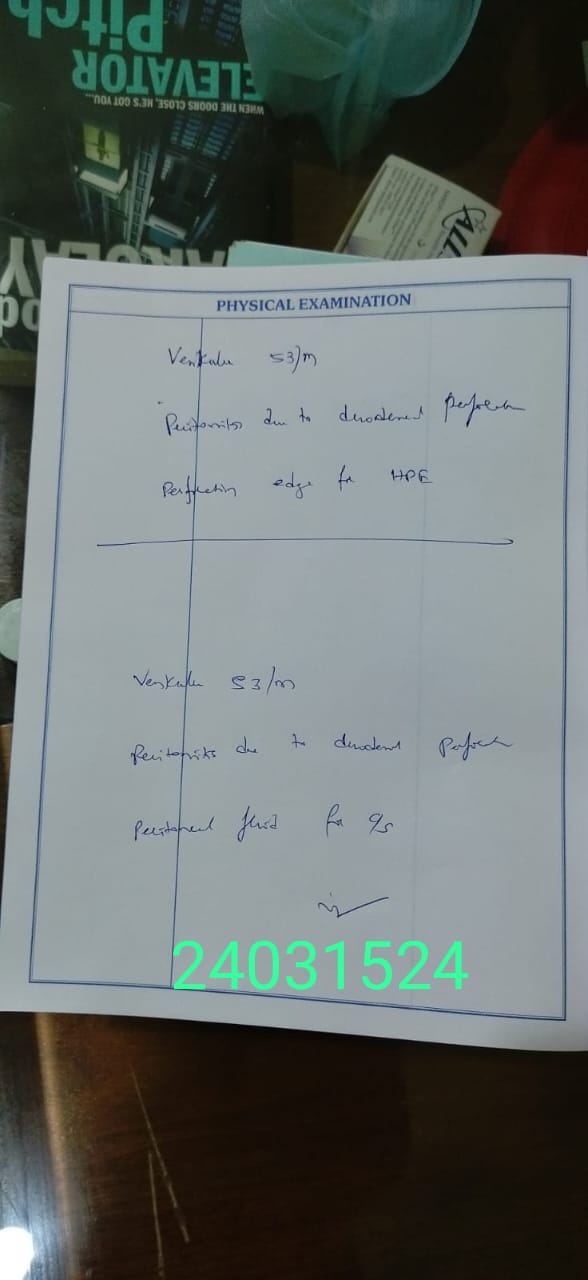 Pitch
ELEVATOR
WHEN THE DOORS CLOSE, HE'S GOT YOU...
ALL
PHYSICAL EXAMINATION
Venkalu 53/m
Peritonitis due to duodenal perforation
Perforation edge for HPE
Venkalu 53/m
Peritonitis due to duodenal perforation
Peritoneal fluid for c/s
24031524